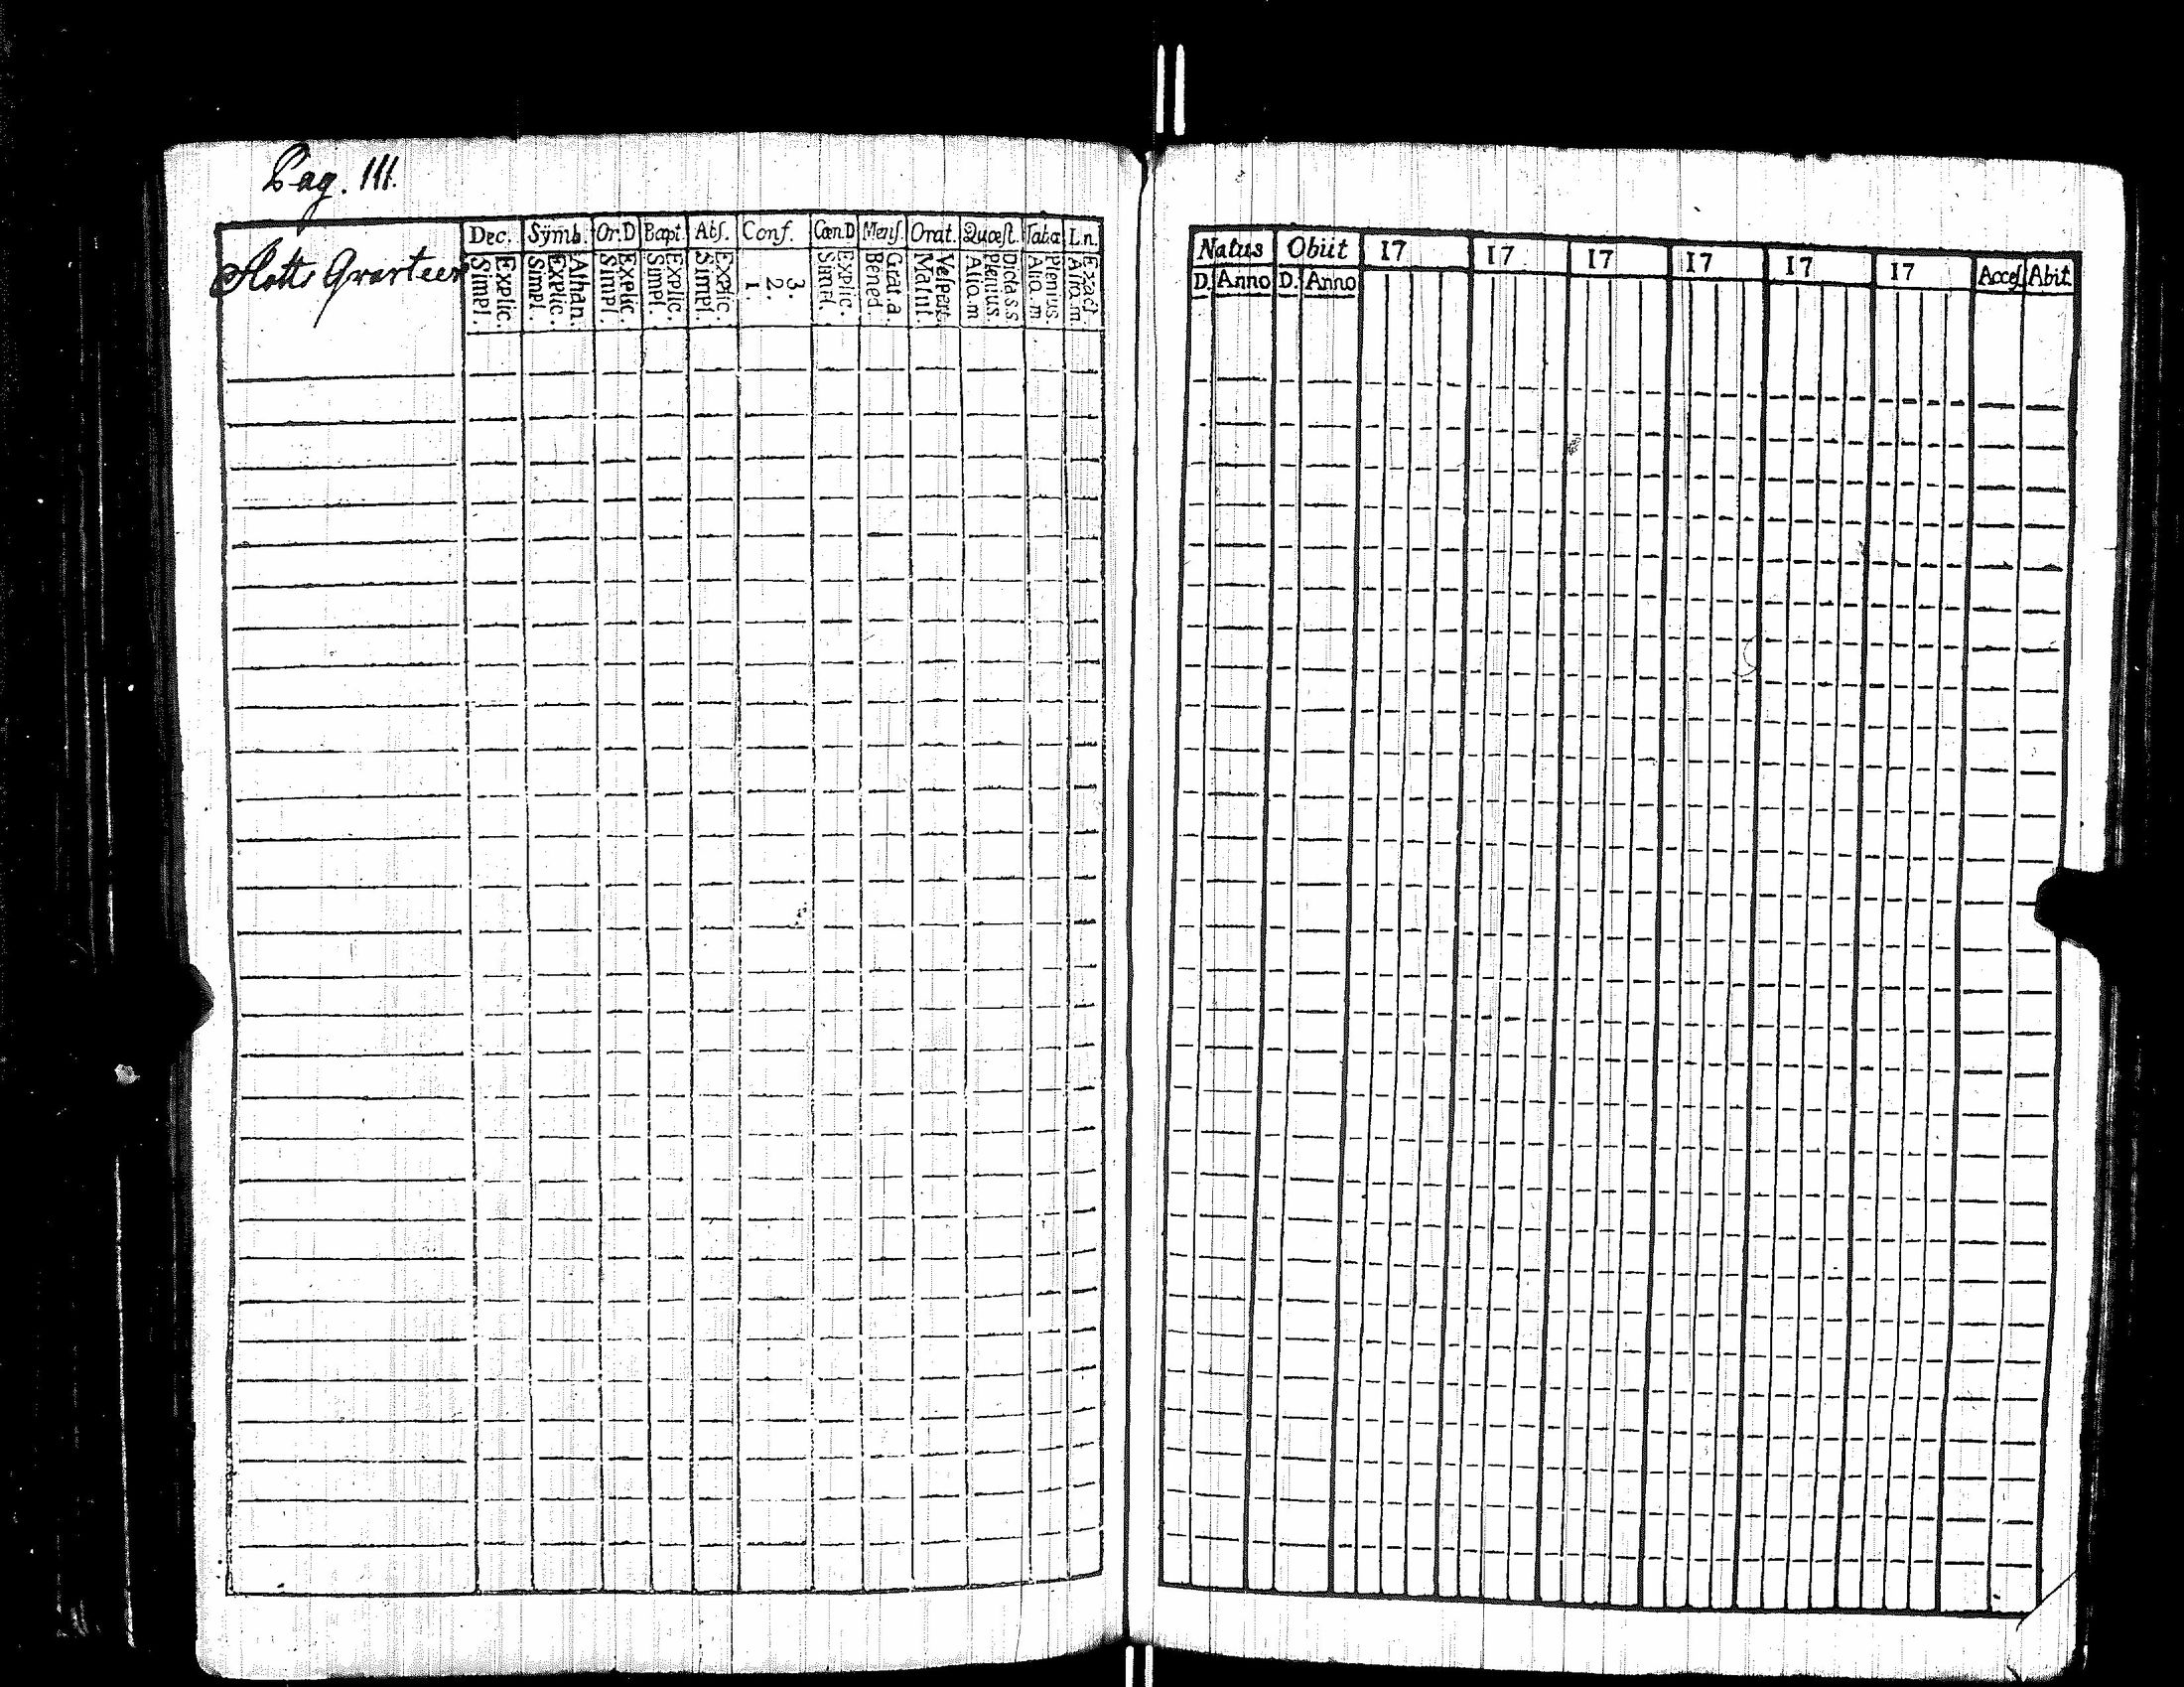 Pag. 111.
Slotts Qvarteer
Dec. Symb. Or.D Bapt. Abs. Conf. Cœn.D Mens. Orat. Quæst. Tab.œ L.n.
Simpl. Explic. Simpl. Explic. Athan. Simpl. Explic. Simpl. Explic. Simpl. Explic. 1. 2. 3. Simpl. Explic. Bened. Grat.a Matut. Vespert. Alio.m. Plenius. Dicta s.s. Alio.m Plenius. Alio.m. Exact.
Natus Obiit 17 17 17 17 17 17 Acces. Abit.
D. Anno D. Anno